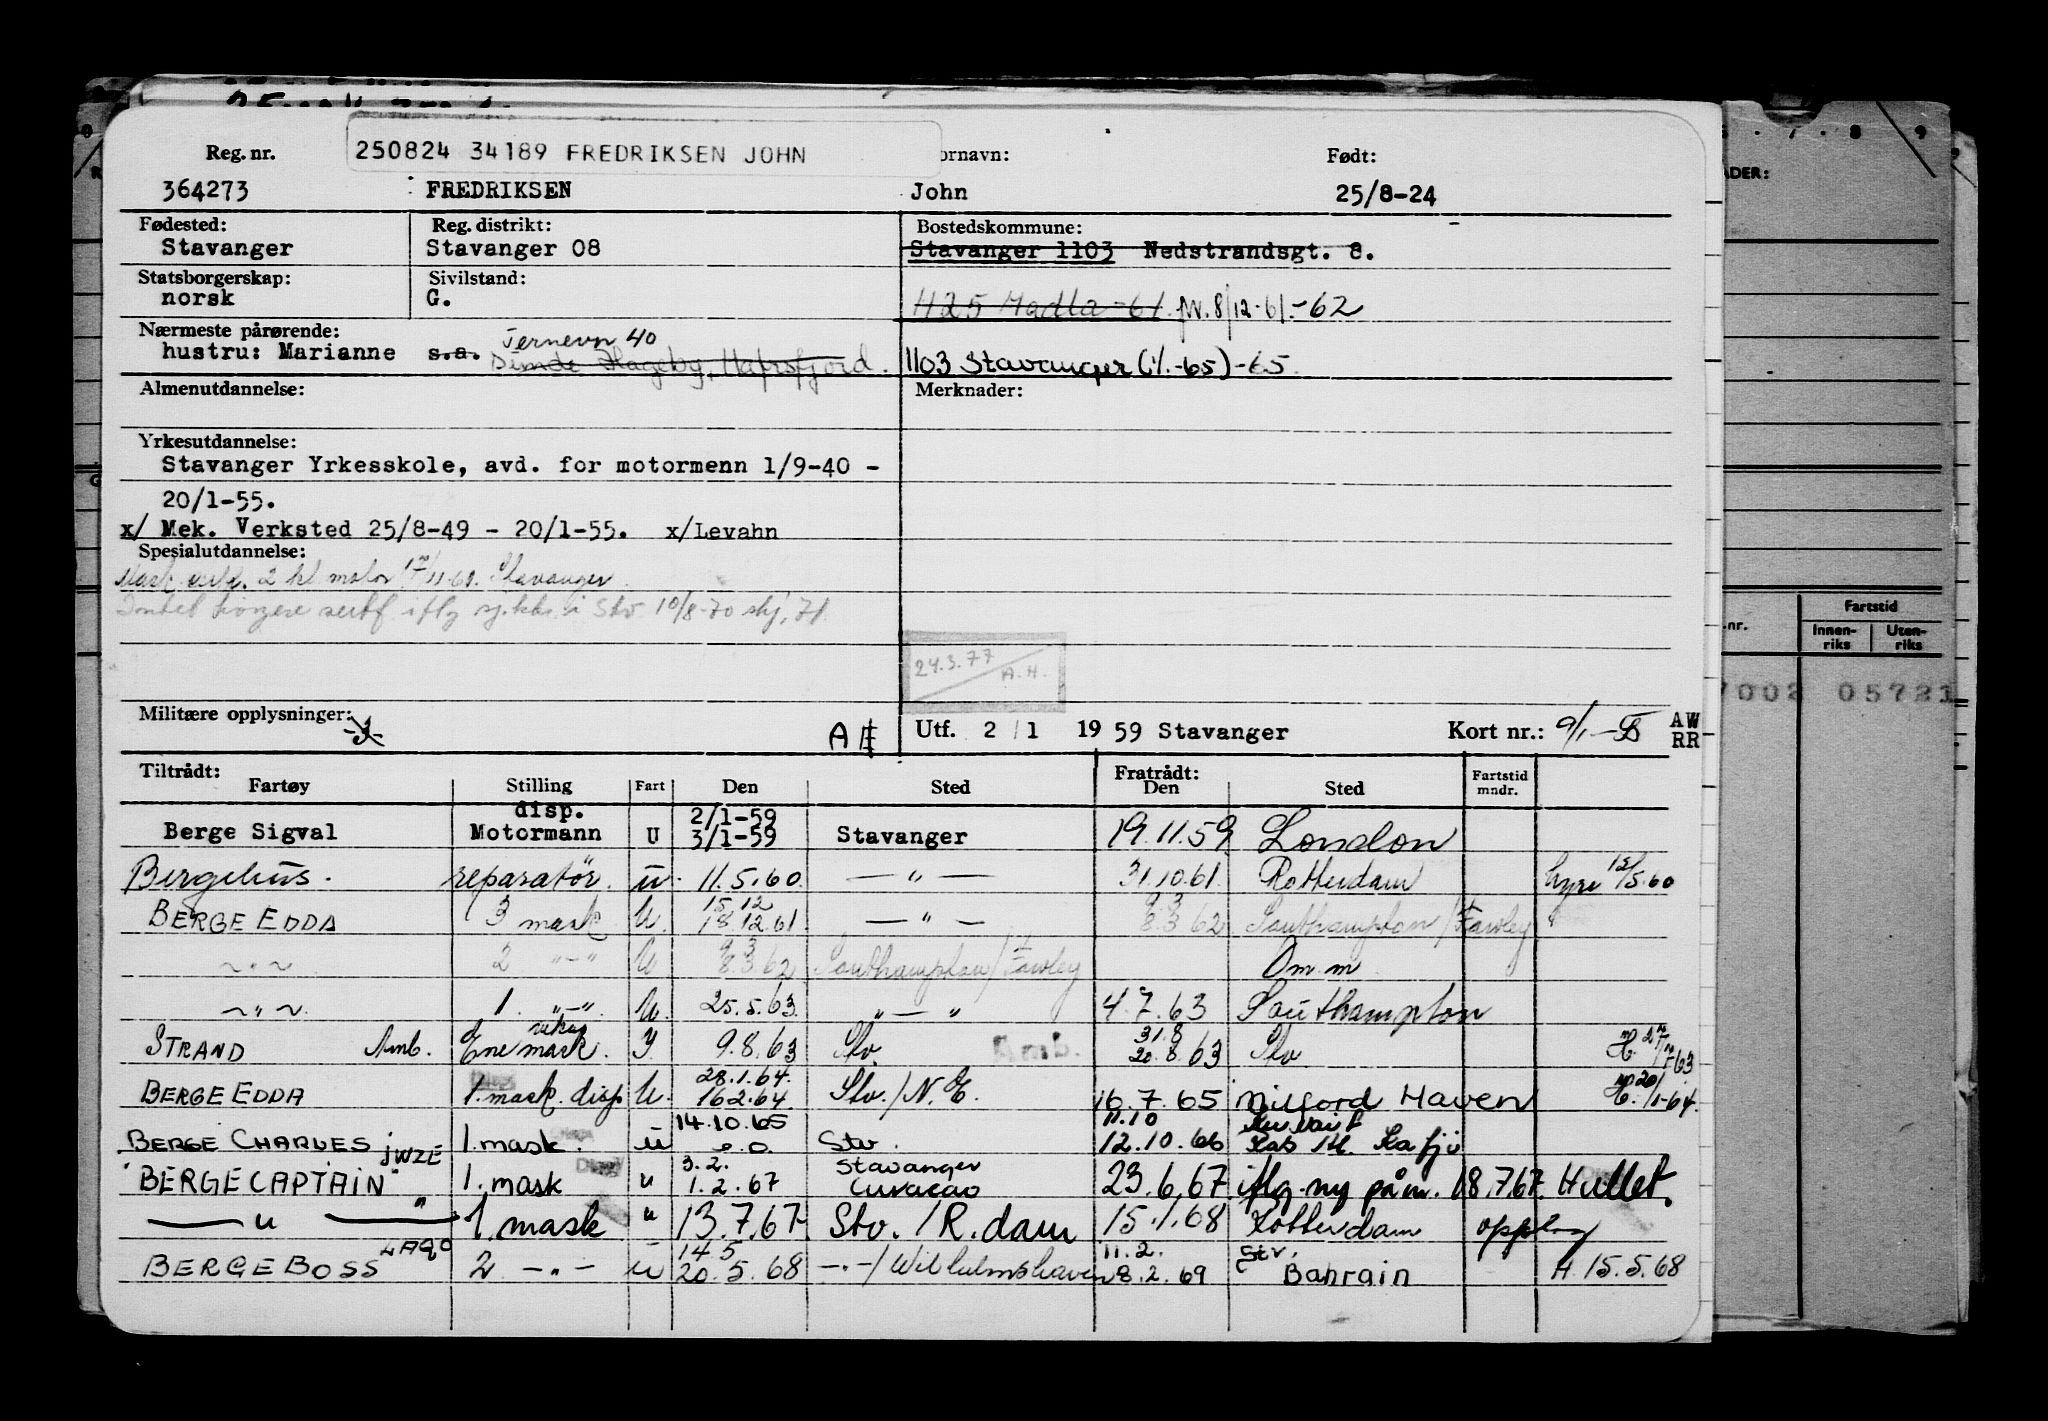 250824 34189 FREDRIKSEN JOHN
Reg. nr. ornavn: Født:
364273 FREDRIKSEN John 25/8-24
Fødested: Reg. distrikt: Bostedskommune:
Stavanger Stavanger 08 Stavanger 1103 Nedstrandsgt. 8.
Statsborgerskap: Sivilstand:
norsk G. H25 Madla -61 pr. 8/12-61.-62
Nærmeste pårørende: Ternevn 40
hustru: Marianne s.a. Hageby, Hafrsfjord. 1103 Stavanger (1/1.-65)-65
Almenutdannelse: Merknader:
Yrkesutdannelse:
Stavanger Yrkesskole, avd. for motormenn 1/9-40 -
20/1-55.
x/ Mek. Verksted 25/8-49 - 20/1-55. x/Levahn
Spesialutdannelse:
Mask. sertf. 2 kl motor Stavanger
høyere sertf. iflg i Stv 10/8-70 skj. 71
24.3.77
A.H.
Militære opplysninger: -3-
A Utf. 2/1 1959 Stavanger Kort nr.: 9/1- AW
RR
Tiltrådt: Fratrådt:
Fartøy Stilling Fart Den Sted Den Sted Fartstid mndr.
disp. 2/1-59
Berge Sigval Motormann U 3/1-59 Stavanger 19.11.59 London
Bergehus. reparatør. u. 11.5.60 — " — 31.10.61 Rotterdam hyre 12/5.60
15.12 9.3
BERGE EDDA 3 mask U. 18.12.61 — " — 8.3.62 Southampton/Fawley
9.3
~ " ~ 2 "-" U 8.3.62 Southampton/Fawley Om.m
~ " ~ 1. "-" U. 25.5.63 " — " 4.7.63 Southampton
vikar 31.8
STRAND Amb. Ene mask. I. 9.8.63 Stv Amb. 20.8.63 Stv
28.1.64.
BERGE EDDA 1. mask. disp U. 16.2.64 Stv./N.E. 16.7.65 Milford Haven
14.10.65 11.10 Kuwait
BERGE CHARLES JWZE 1. mask. u o.o. Stv. 12.10.66
3.2. Stavanger
"BERGE CAPTAIN" 1. mask u 1.2.67 Curacao 23.6.67. iflg. ny påm. 18.7.67. Hullet.
— " — 1. mask " 13.7.67 Stv. /R.dam 15.1.68 Rotterdam opplag
LAQO 14.5 11.2. Stv.
BERGE BOSS 2 — " — u 20.5.68 — " —/Wilhelmshaven 8.2.69 Bahrain H. 15.5.68
7 8 9
ADER:
Fartstid
.nr. Innen-riks Uten-riks
7002 05721